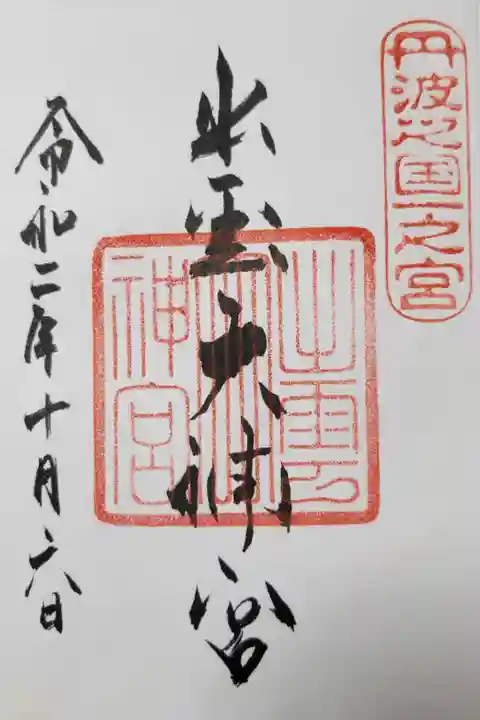 丹波之国一之宮
出雲大神宮
出雲
大
神宮
令和二年十月六日